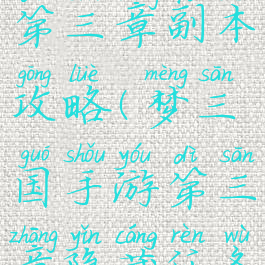 第三章副本
gōng lüè mèng sān
攻略(梦三
guó shǒu yóu dì sān
国手游第三
zhāng yǐn cáng rèn wù
章隐藏任务